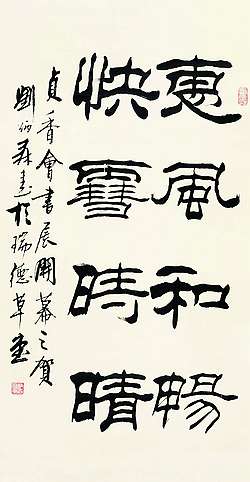 惠風和暢
快雪時晴
貞香會書展開幕之賀
劉伯書於瑞德草堂